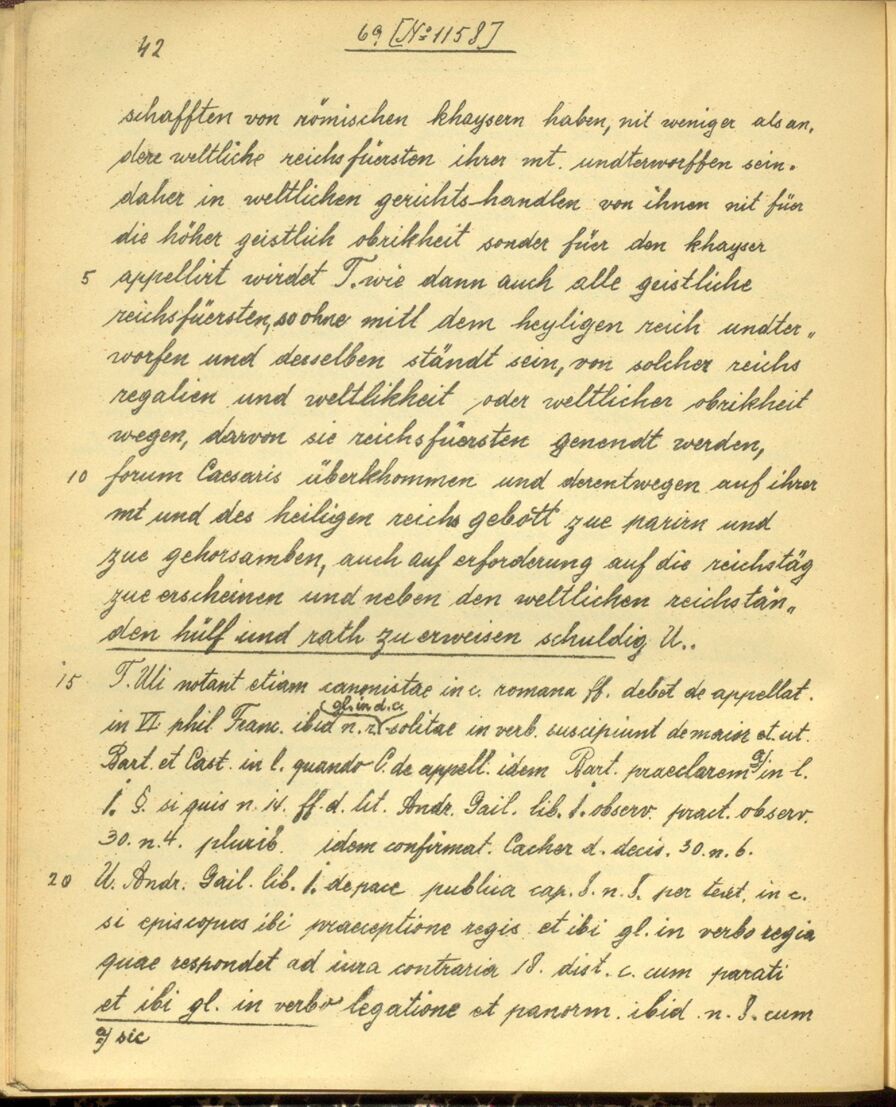 42
69 [No 1158]
schafften von römischen khaysern haben, nit weniger als an,
dere weltliche reichsfüersten ihrer mt. undterworffen sein.
daher in weltlichen gerichts-handlen von ihnen nit füer
die höher geistlich obrikheit sonder füer den khayser
5 appellirt wirdet T. wie dann auch alle geistliche
reichsfüersten, so ohne mitl dem heyligen reich undter„
worfen und desselben ständt sein, von solcher reichs
regalien und weltlikheit oder weltlicher obrikheit
wegen, darvon sie reichsfüersten genendt werden,
10 forum Caesaris überkhommen und derentwegen auf ihrer
mt und des heiligen reichs gebott zue parirn und
zue gehorsamben, auch auf erforderung auf die reichstäg
zue erscheinen und neben den weltlichen reichstän„
den hülf und rath zu erweisen schuldig U..
15 T. Uli notant etiam canonistae in c. romana ff. debet de appellat.
gl. in d. c.
in VI phil Franc. ibid n. 2. solitae in verb. suscipiunt de maior et. ut.
Bart. et Cast. in l. quando C. de appell. idem Bart. praeclarem a) in l.
1. §. si quis n. 14. ff. d. lit. Andr. Gail. lib. 1. observ. pract. observ.
30. n. 4. plurib. idem confirmat. Cacher d. decis. 30. n. 6.
20 U. Andr. Gail. lib. 1. de pace publica cap. 8. n. 8. per text. in c.
si episcopus ibi praeceptione regis et ibi gl. in verbo regia
quae respondet ad iura contraria 18. dist. c. cum parati
et ibi gl. in verbo legatione et panorm. ibid. n. 8. cum
a) sic